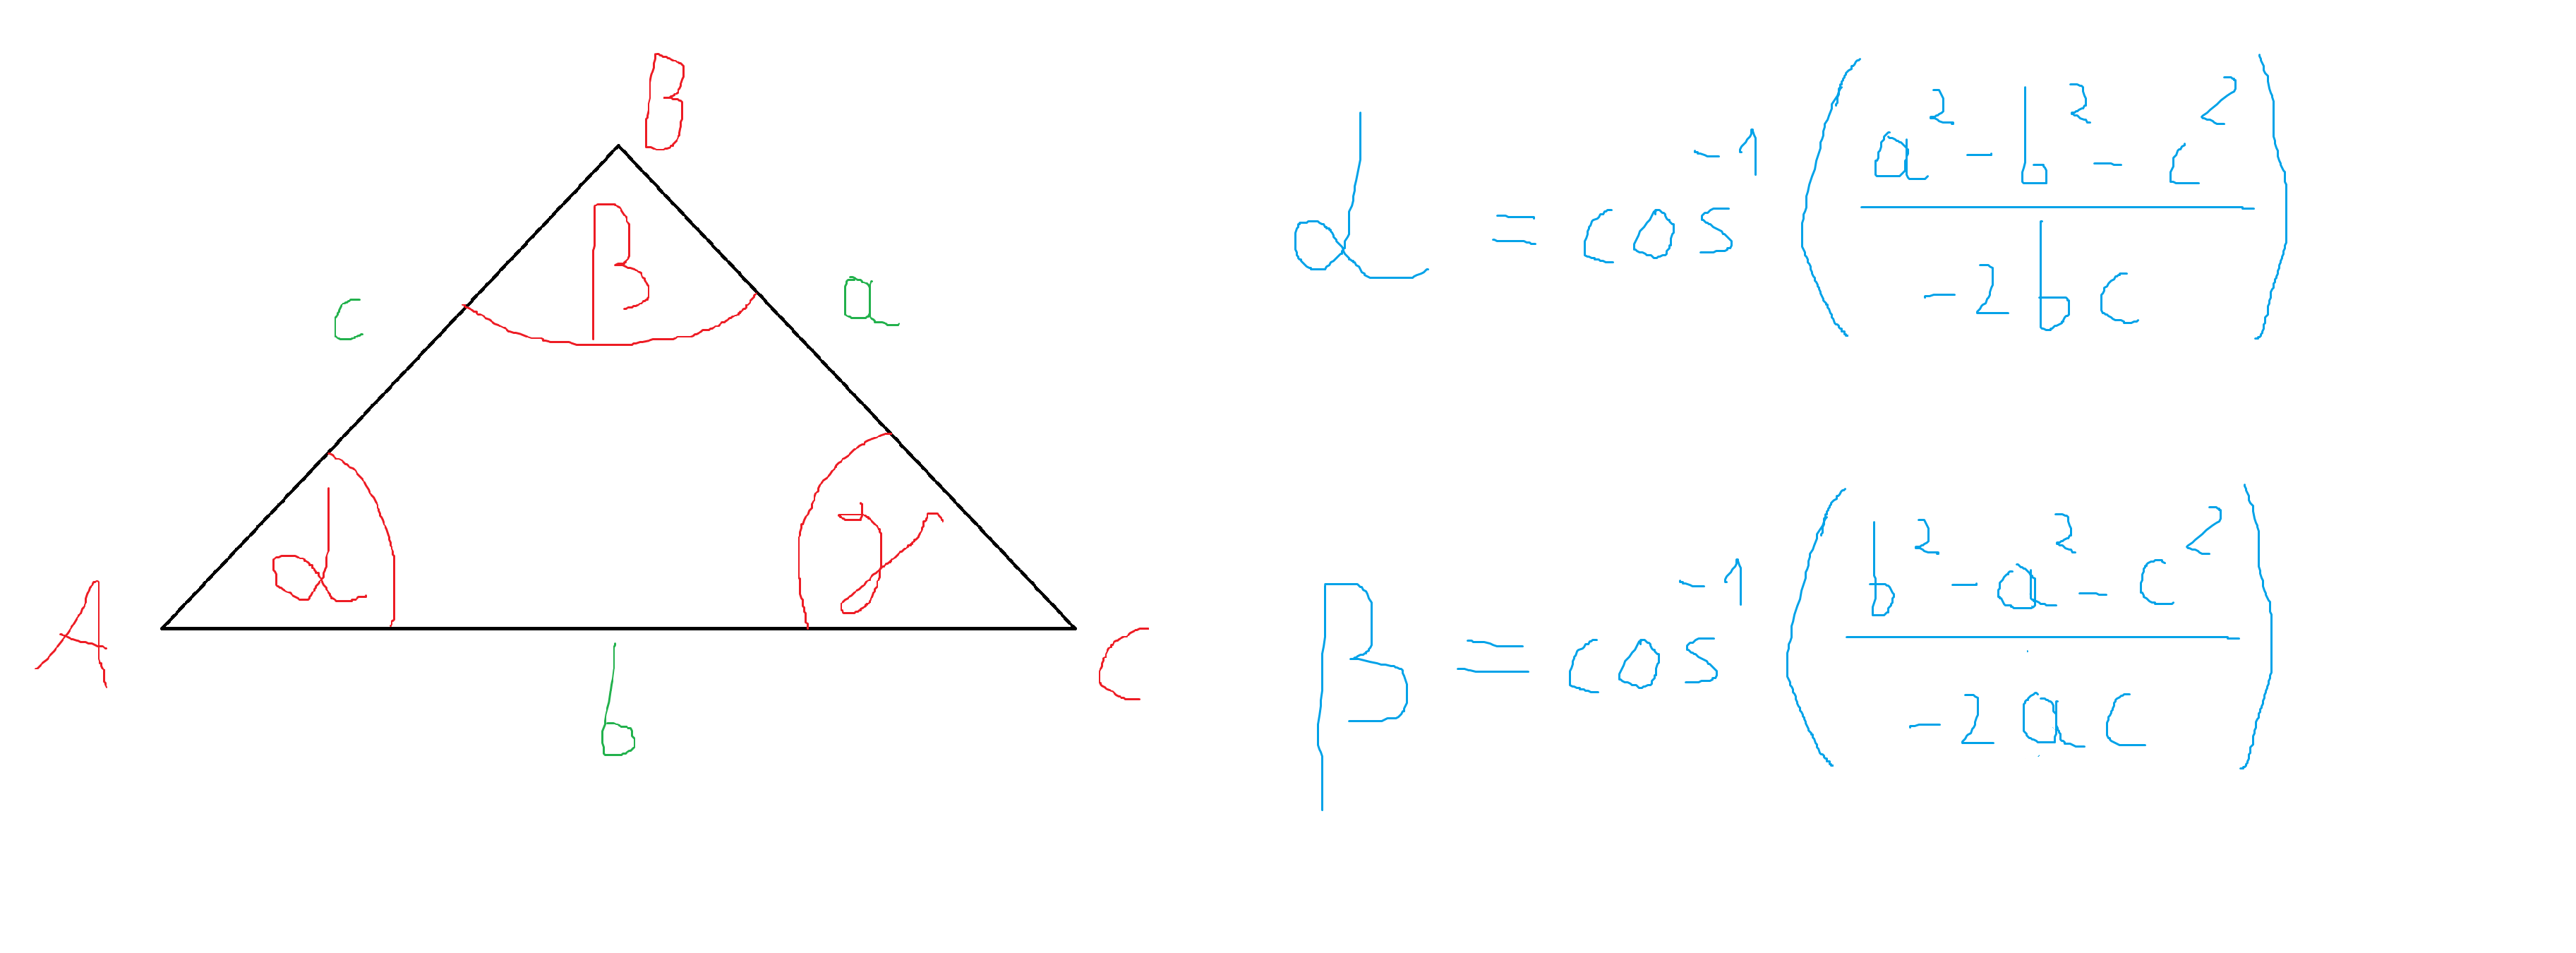 B
β
c
a
α
γ
A
C
b
α = cos⁻¹ ( (a² - b² - c²) / (-2bc) )
β = cos⁻¹ ( (b² - a² - c²) / (-2ac) )